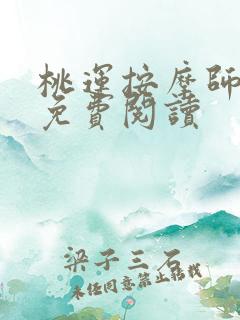 桃運按摩師
免費閱讀
梁子三石
未經同意禁止轉載